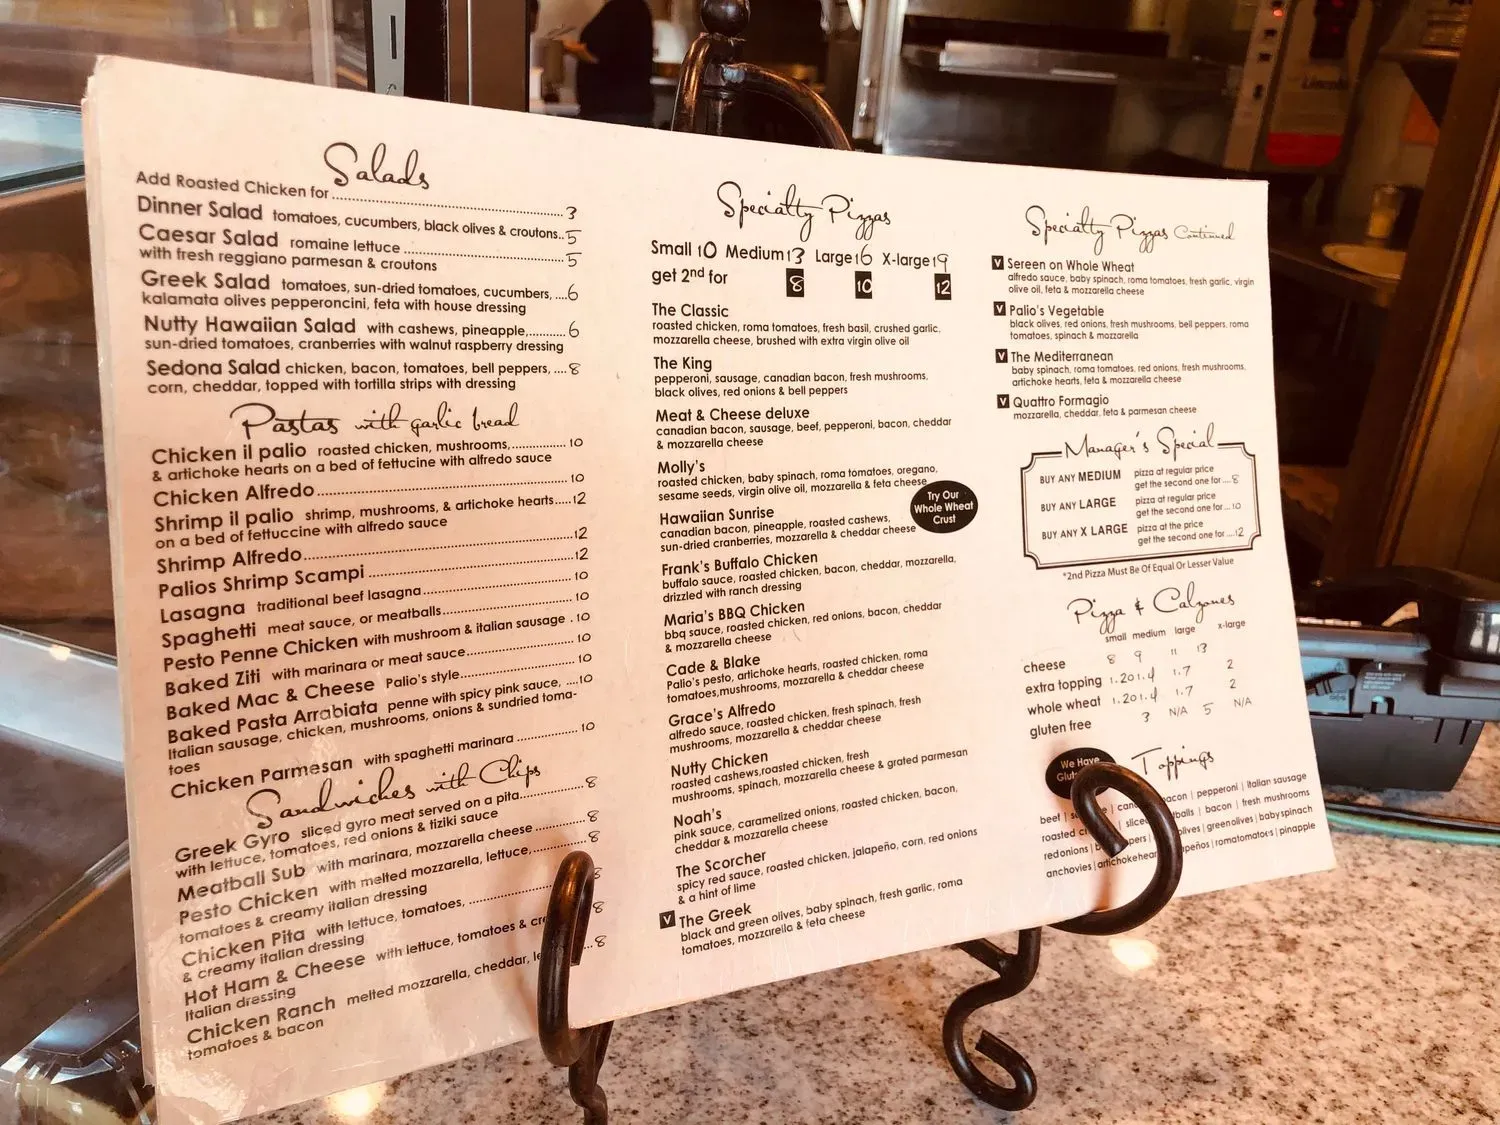 Salads
Add Roasted Chicken for 3
Dinner Salad tomatoes, cucumbers, black olives & croutons..5
Caesar Salad romaine lettuce 5
with fresh reggiano parmesan & croutons
Greek Salad tomatoes, sun-dried tomatoes, cucumbers, ....6
kalamata olives pepperoncini, feta with house dressing
Nutty Hawaiian Salad with cashews, pineapple, 6
sun-dried tomatoes, cranberries with walnut raspberry dressing
Sedona Salad chicken, bacon, tomatoes, bell peppers, ....8
corn, cheddar, topped with tortilla strips with dressing
Pastas with garlic bread
Chicken il palio roasted chicken, mushrooms, 10
& artichoke hearts on a bed of fettucine with alfredo sauce
Chicken Alfredo 10
Shrimp il palio shrimp, mushrooms, & artichoke hearts.....12
on a bed of fettuccine with alfredo sauce
Shrimp Alfredo 12
Palios Shrimp Scampi 12
Lasagna traditional beef lasagna 10
Spaghetti meat sauce, or meatballs 10
Pesto Penne Chicken with mushroom & italian sausage . 10
Baked Ziti with marinara or meat sauce 10
Baked Mac & Cheese Palio's style 10
Baked Pasta Arrabiata penne with spicy pink sauce, ....10
Italian sausage, chicken, mushrooms, onions & sundried toma-
toes
Chicken Parmesan with spaghetti marinara 10
Sandwiches with Chips
Greek Gyro sliced gyro meat served on a pita 8
with lettuce, tomatoes, red onions & tiziki sauce
Meatball Sub with marinara, mozzarella cheese 8
Pesto Chicken with melted mozzarella, lettuce, 8
tomatoes & creamy italian dressing
Chicken Pita with lettuce, tomatoes,
& creamy italian dressing
Hot Ham & Cheese with lettuce, tomatoes & 8
Italian dressing
Chicken Ranch melted mozzarella, cheddar, 8
tomatoes & bacon
Specialty Pizzas
Small 10 Medium 13 Large 16 X-large 19
get 2nd for 8 10 12
The Classic
roasted chicken, roma tomatoes, fresh basil, crushed garlic,
mozzarella cheese, brushed with extra virgin olive oil
The King
pepperoni, sausage, canadian bacon, fresh mushrooms,
black olives, red onions & bell peppers
Meat & Cheese deluxe
canadian bacon, sausage, beef, pepperoni, bacon, cheddar
& mozzarella cheese
Molly's
roasted chicken, baby spinach, roma tomatoes, oregano,
sesame seeds, virgin olive oil, mozzarella & feta cheese
Hawaiian Sunrise
canadian bacon, pineapple, roasted cashews,
sun-dried cranberries, mozzarella & cheddar cheese
Try Our
Whole Wheat
Crust
Frank's Buffalo Chicken
buffalo sauce, roasted chicken, bacon, cheddar, mozzarella,
drizzled with ranch dressing
Maria's BBQ Chicken
bbq sauce, roasted chicken, red onions, bacon, cheddar
& mozzarella cheese
Cade & Blake
Palio's pesto, artichoke hearts, roasted chicken, roma
tomatoes,mushrooms, mozzarella & cheddar cheese
Grace's Alfredo
alfredo sauce, roasted chicken, fresh spinach, fresh
mushrooms, mozzarella & cheddar cheese
Nutty Chicken
roasted cashews,roasted chicken, fresh
mushrooms, spinach, mozzarella cheese & grated parmesan
Noah's
pink sauce, caramelized onions, roasted chicken, bacon,
cheddar & mozzarella cheese
The Scorcher
spicy red sauce, roasted chicken, jalapeño, corn, red onions
& a hint of lime
V The Greek
black and green olives, baby spinach, fresh garlic, roma
tomatoes, mozzarella & feta cheese
Specialty Pizzas Continued
V Sereen on Whole Wheat
alfredo sauce, baby spinach, roma tomatoes, fresh garlic, virgin
olive oil, feta & mozzarella cheese
V Palio's Vegetable
black olives, red onions, fresh mushrooms, bell peppers, roma
tomatoes, spinach & mozzarella
V The Mediterranean
baby spinach, roma tomatoes, red onions, fresh mushrooms,
artichoke hearts, feta & mozzarella cheese
V Quattro Formagio
mozzarella, cheddar, feta & parmesan cheese
Manager's Special
BUY ANY MEDIUM pizza at regular price
get the second one for....8
BUY ANY LARGE pizza at regular price
get the second one for...10
BUY ANY X LARGE pizza at the price
get the second one for....12
*2nd Pizza Must Be Of Equal Or Lesser Value
Pizza & Calzones
small medium large x-large
cheese 8 9 11 13
extra topping 1.20 1.4 1.7 2
whole wheat 1.20 1.4 1.7 2
gluten free 3 N/A 5 N/A
We Have
Toppings
beef | bacon | pepperoni | italian sausage
roasted | sliced | bacon | fresh mushrooms
redonions | | greenolives | babyspinach
anchovies | | romatomatoes | pinapple